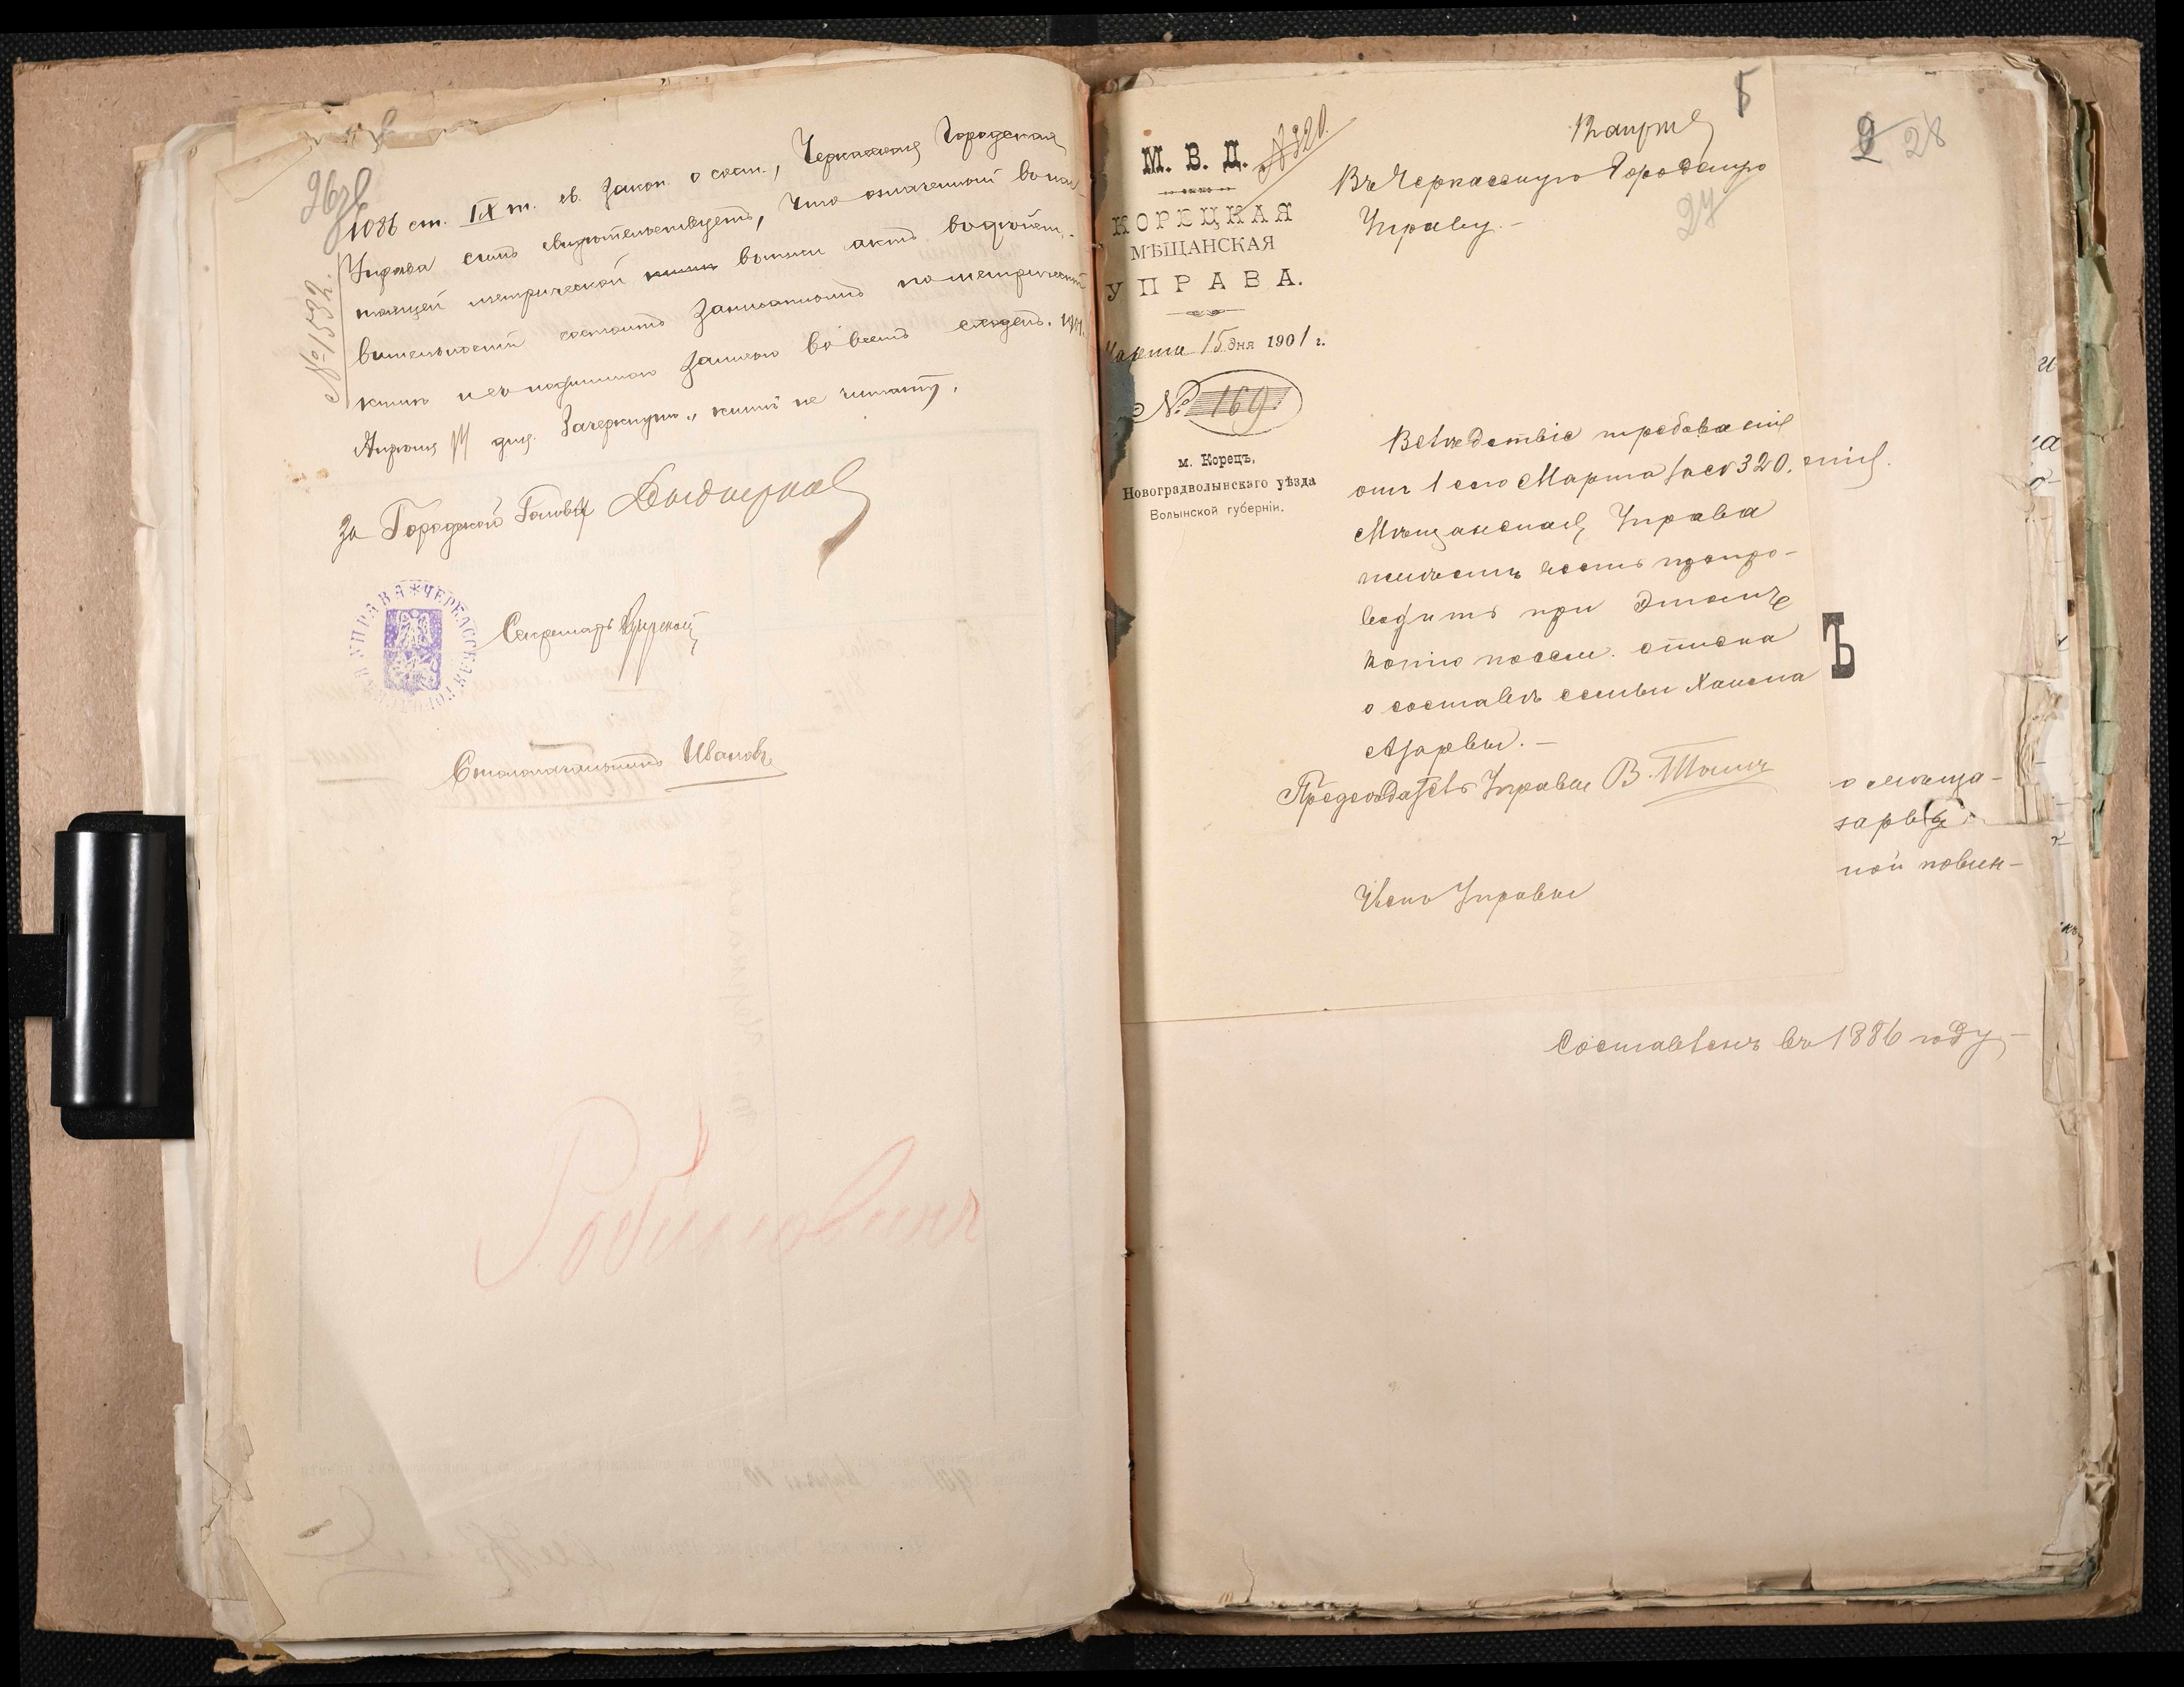 26 об
№ 1532.
1086 ст. IX т. св. Закон. о сост., Черкасская Городская
Управа симъ свидѣтельствуетъ, что означенный въ нас-
тоящей метрической книги выписи актъ въ дѣйст-
вительности состоитъ записаннымъ по метрической
книгѣ и съ подлинною записью во всемъ сходенъ. 1901.
Апрѣля дня. Зачеркнуто „книги не читать.
За Городской Головы
Секретарь
Столоначальникъ Ивановъ
УПРАВА * ЧЕРКАССКАЯ ГОРОДСКАЯ
Рабиновичъ
М. В. Д.
№ 320.
КОРЕЦКАЯ
МѢЩАНСКАЯ
УПРАВА.
Марта 15 дня 1901 г.
№ 169
м. Корецъ,
Новоградволынскаго уѣзда
Волынской губерніи.
5
12 апрѣля
Въ Черкасскую Городскую
Управу.-
27
2 28
Вслѣдствіе требованія
отъ 1 сего Марта за № 320,
Мѣщанская Управа
имѣетъ честь препро-
водить при этомъ
копію посем. списка
о составѣ семьи Хаима
Азарвы.-
Предсѣдатель Управы В.
Членъ Управы
енія
Ъ
о мѣща-
зарвы
ной повин-
Составленъ въ 1886 году-